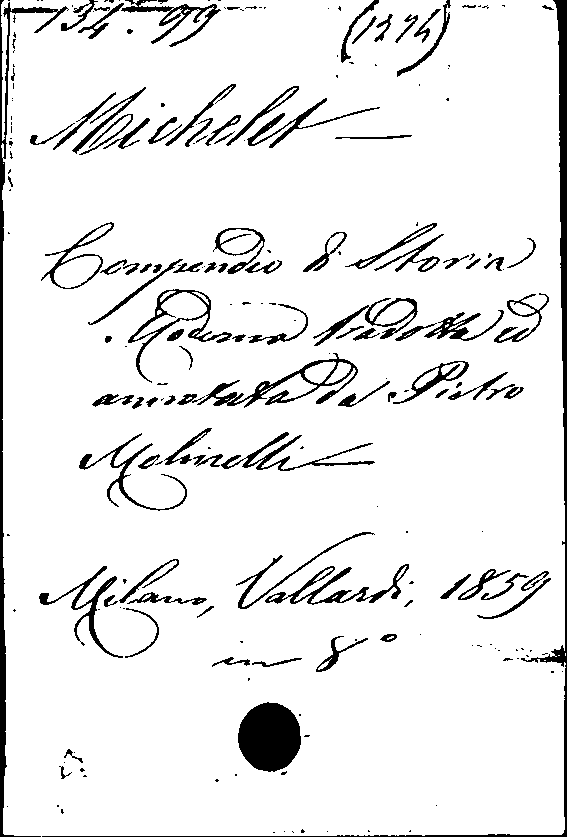 134. 99 (1274)
Michelet —
Compendio di Storia
Moderna tradotta ed
annotata da Pietro
Molinelli —
Milano, Vallardi, 1859
in 8°